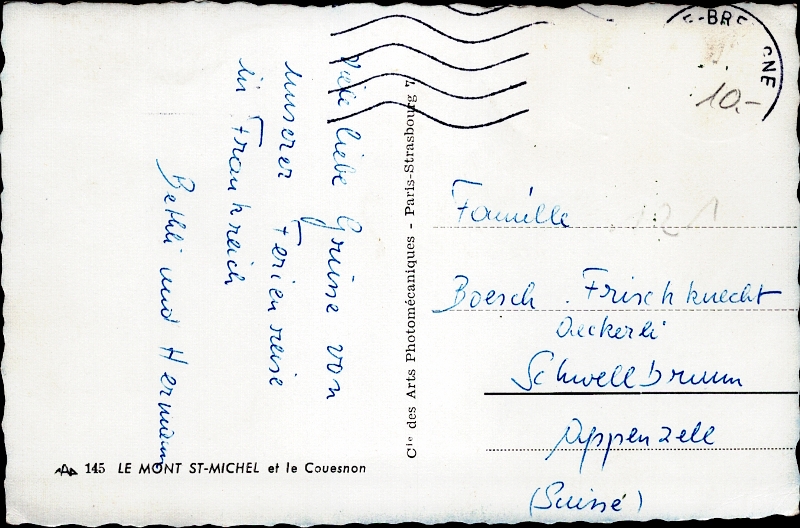 Viele liebe Grüsse von
unserer Ferienreise
in Frankreich
Bethli und Hermann
Cie des Arts Photomécaniques - Paris-Strasbourg 7
145 LE MONT ST-MICHEL et le Couesnon
GNE
10.-
121
Familie
Boesch - Frischknecht
Aeckerli
Schwellbrunn
Appenzell
(Suisse)